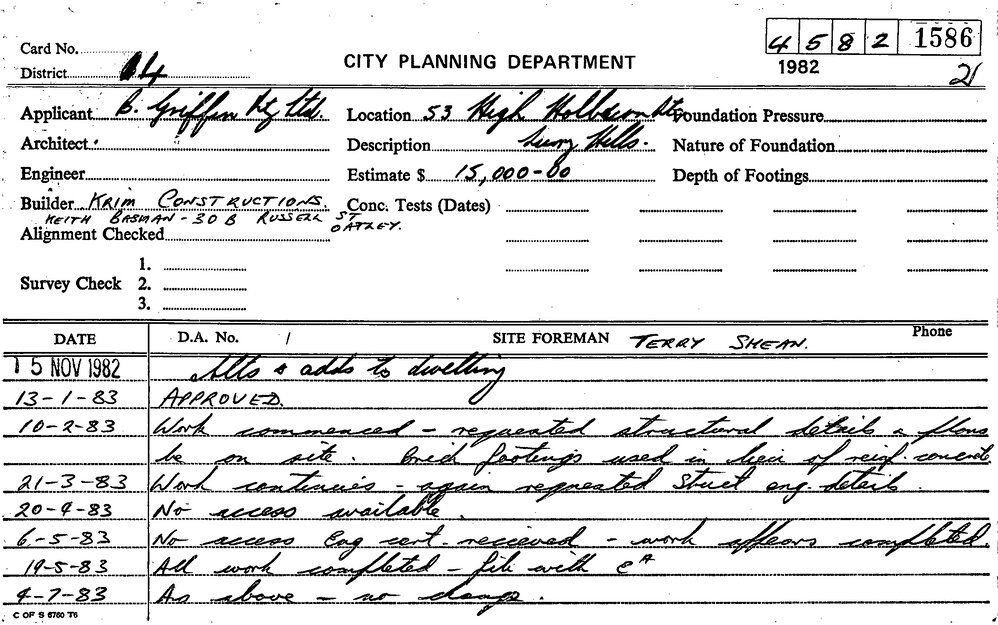 4 5 8 2 1586
Card No.
CITY PLANNING DEPARTMENT
1982
21
District
Applicant B. Griffin Pty Ltd. Location 53 High Holborn St. Foundation Pressure
Architect Description Surry Hills. Nature of Foundation
Engineer Estimate $ 15,000-00 Depth of Footings
Builder KRIM CONSTRUCTIONS. Conc. Tests (Dates)
KEITH BASMAN - 30 B RUSSELL ST
OATLEY.
Alignment Checked
1.
Survey Check 2.
3.
DATE D.A. No. / SITE FOREMAN TERRY SHEAN. Phone
15 NOV 1982 Alts & adds to dwelling
13-1-83 APPROVED.
10-2-83 Work commenced - requested structural details & plans
be on site. Brick footings used in lieu of reinf. concrete
21-3-83 Work continues - again requested Struct eng. details.
20-4-83 No access available.
6-5-83 No access Eng cert. recieved - work appears completed.
19-5-83 All work completed - file with
4-7-83 As above - no change.
C OF S 6760 T6